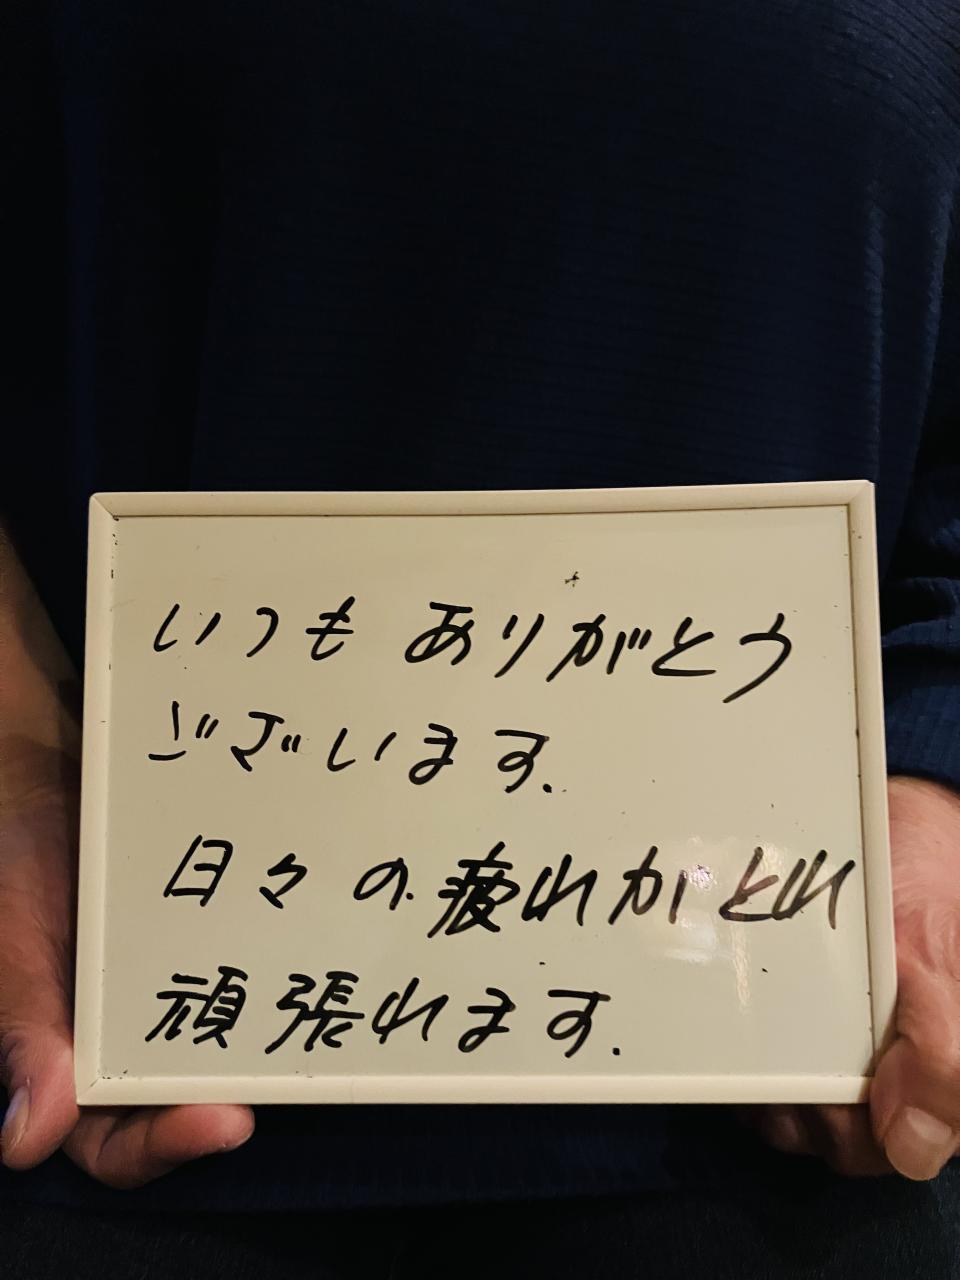 いつもありがとう
ございます.
日々の疲れがとれ
頑張れます.